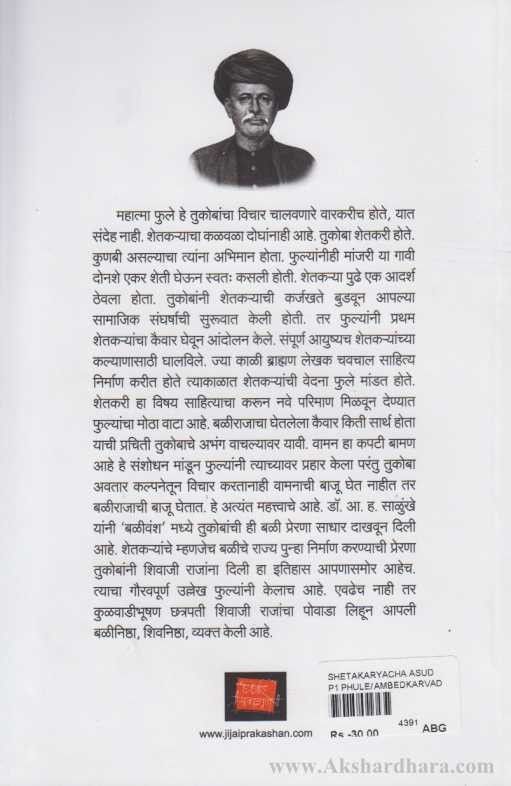 महात्मा फुले हे तुकोबांचा विचार चालवणारे वारकरीच होते, यात
संदेह नाही. शेतकऱ्याचा कळवळा दोघांनाही आहे. तुकोबा शेतकरी होते.
कुणबी असल्याचा त्यांना अभिमान होता. फुल्यांनीही मांजरी या गावी
दोनशे एकर शेती घेऊन स्वतः कसली होती. शेतकऱ्या पुढे एक आदर्श
ठेवला होता. तुकोबांनी शेतकऱ्याची कर्जखते बुडवून आपल्या
सामाजिक संघर्षाची सुरूवात केली होती. तर फुल्यांनी प्रथम
शेतकऱ्यांचा कैवार घेवून आंदोलन केले. संपूर्ण आयुष्यच शेतकऱ्यांच्या
कल्याणासाठी घालविले. ज्या काळी ब्राह्मण लेखक चवचाल साहित्य
निर्माण करीत होते त्याकाळात शेतकऱ्यांची वेदना फुले मांडत होते.
शेतकरी हा विषय साहित्याचा करून नवे परिमाण मिळवून देण्यात
फुल्यांचा मोठा वाटा आहे. बळीराजाचा घेतलेला कैवार किती सार्थ होता
याची प्रचिती तुकोबाचे अभंग वाचल्यावर यावी. वामन हा कपटी बामण
आहे हे संशोधन मांडून फुल्यांनी त्याच्यावर प्रहार केला परंतु तुकोबा
अवतार कल्पनेतून विचार करतानाही वामनाची बाजू घेत नाहीत तर
बळीराजाची बाजू घेतात. हे अत्यंत महत्त्वाचे आहे. डॉ. आ. ह. साळुंखे
यांनी 'बळीवंश' मध्ये तुकोबांची ही बळी प्रेरणा साधार दाखवून दिली
आहे. शेतकऱ्यांचे म्हणजेच बळीचे राज्य पुन्हा निर्माण करण्याची प्रेरणा
तुकोबांनी शिवाजी राजांना दिली हा इतिहास आपणासमोर आहेच.
त्याचा गौरवपूर्ण उल्लेख फुल्यांनी केलाच आहे. एवढेच नाही तर
कुळवाडीभूषण छत्रपती शिवाजी राजांचा पोवाडा लिहून आपली
बळीनिष्ठा, शिवनिष्ठा, व्यक्त केली आहे.
www.jijaiprakashan.com
SHETAKARYACHA ASUD
P1 PHULE/AMBEDKARVAD
4391
Rs -30.00 ABG
www.Akshardhara.com